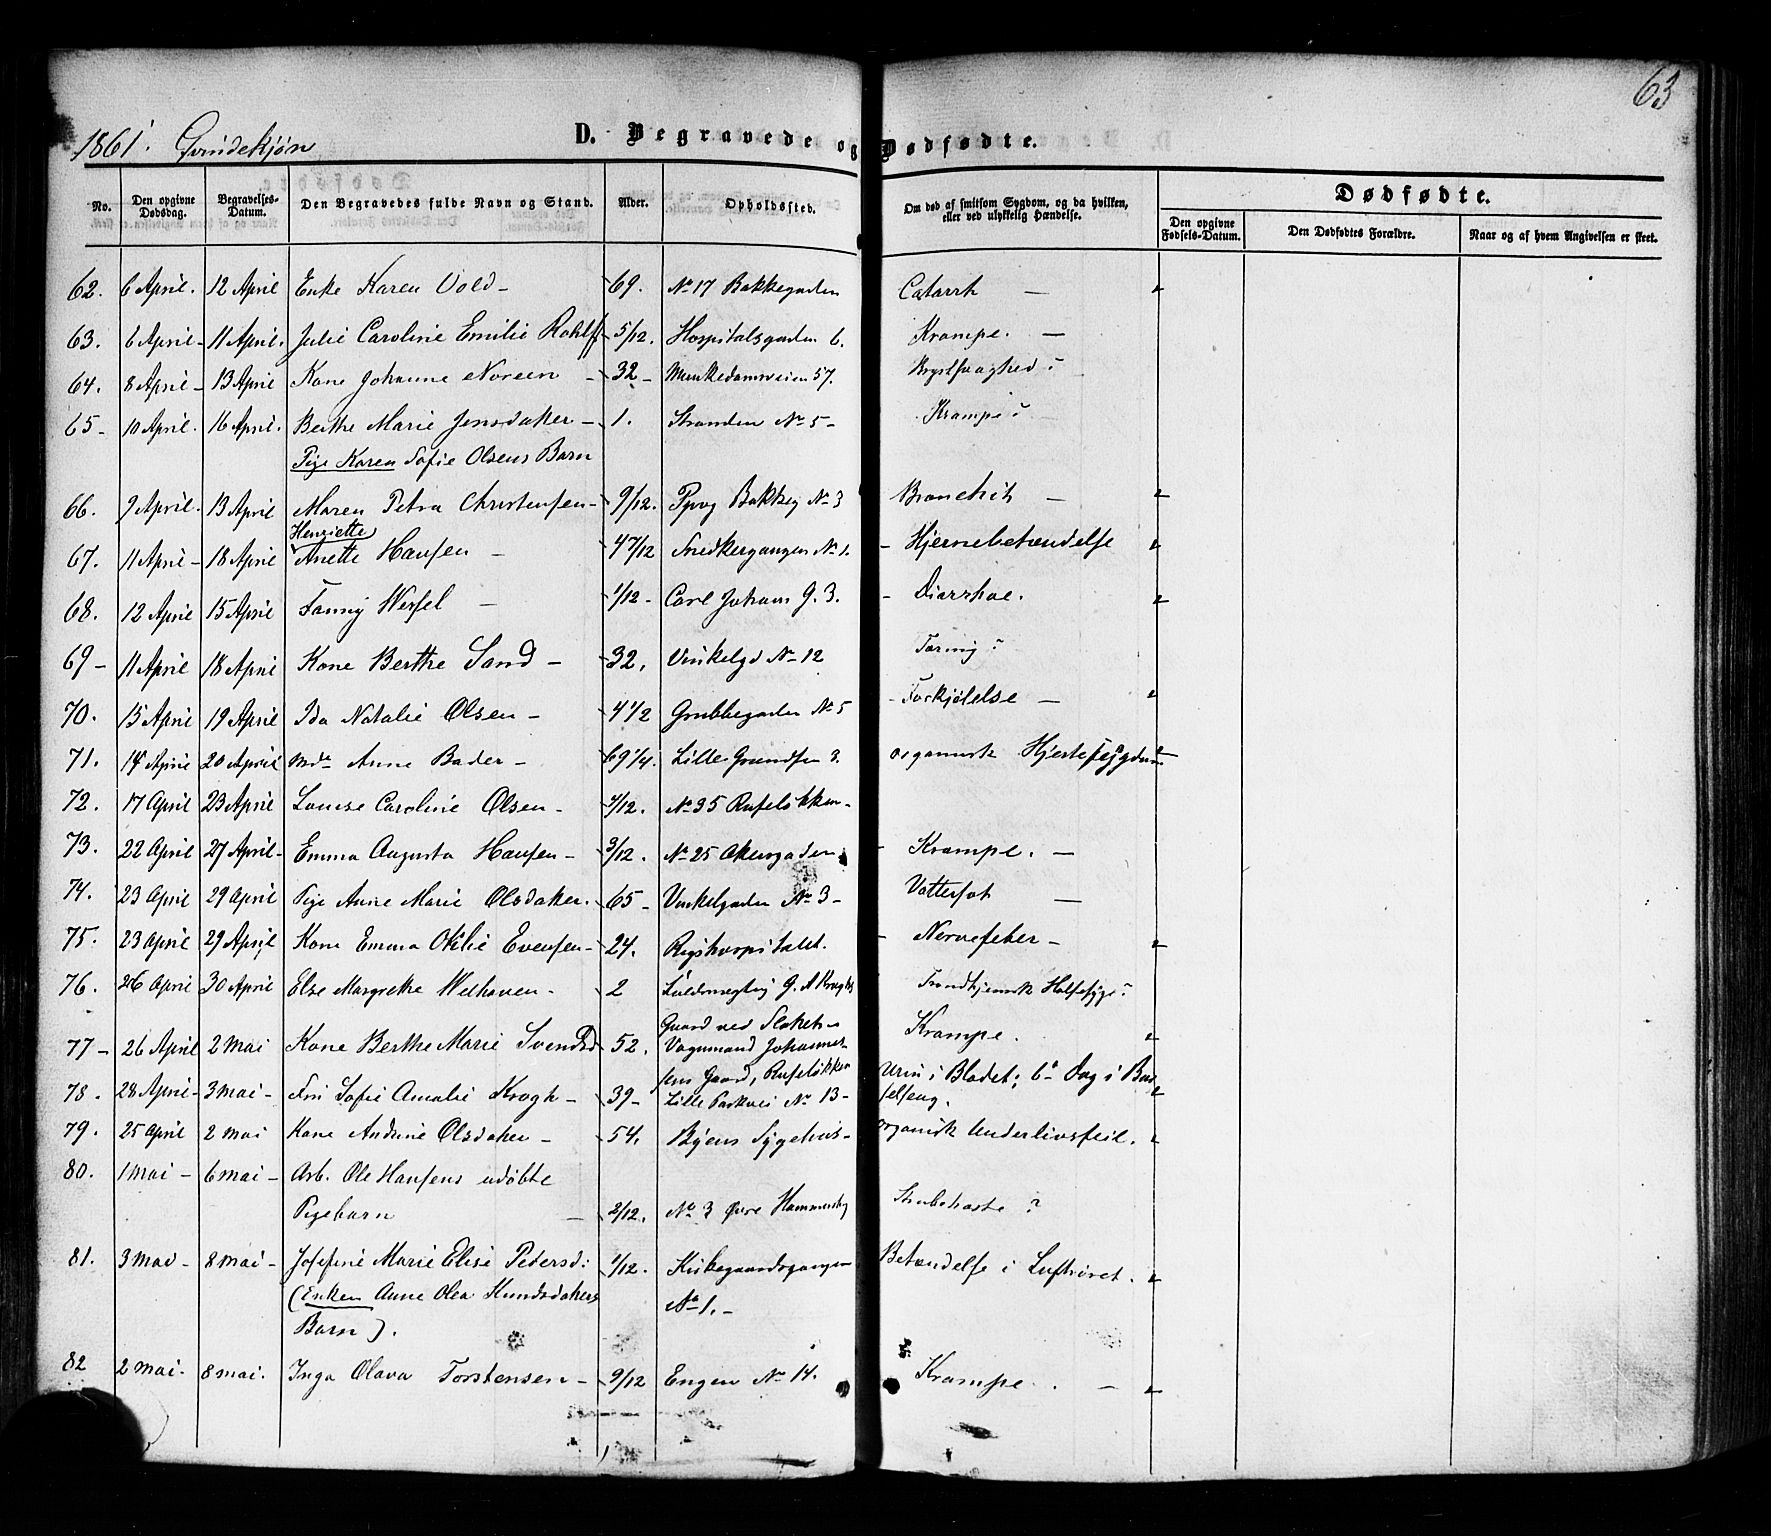 63
1861. Qvindekjøn
D. Begravede og Dødfødte.
No. Den opgivne Dødsdag. Begravelses-Datum. Den Begravedes fulde Navn og Stand. Alder. Opholdssted. Om død af smitsom Sygdom, og da hvilken, eller ved ulykkelig Hændelse. Dødfødte.
Den opgivne Fødsels-Datum. Den Dødfødtes Forældre. Naar og af hvem Angivelsen er skeet.
62. 6 April. 12 April Enke Karen Vold - 69. No 17 Bakkegaden Catarrh -
63. 6 April - 11 April. Julie Caroline Emilie Rohlff 5/12. Hospitalsgaden 6. Krampe. -
64. 8 April - 13 April Kone Johanne Noreen - 32 - Munkedamsveien 57. Brystsvaghed ?
65 - 10 April. 16 April. Berthe Marie Jensdatter - 1. Stranden No 5 - Krampe ?
Pige Karen Sofie Olsens Barn
66. 9 April. 13 April Maren Petra Christensen - 9/12. Pposg Bakkeg No 3 Bronchit -
Henriette
67. 11 April - 18 April Anette Hansen - 4 7/12 Snedkergangen No 1. - Hjernebetændelse
68. 12 April 15 April Fanny Wessel - 1/12 - Carl Johans G. 3. - Diarrhoe.
69 - 11 April 18 April Kone Berthe Sand - 32. Vinkelgd No 12 Tæring ?
70. 15 April 19 April Ida Natalie Olsen - 4 1/2 Grubbegaden No 5 - Forkjølelse -
71. 14 April 20 April Md. Anne Bader - 69 1/4. Lille Grændsen 3. organisk Hjertesygdom
72. 17 April 23 April Louise Caroline Olsen - 4/12. No 35 Rufeløkken -
73. 22 April 27 April - Emma Augusta Hansen - 3/12. No 25 Akersgaden - Krampe. -
74. 23 April 29 April Pige Anne Marie Olsdatter. 65 - Vinkelgaden No 3 - Vattersot -
75. 23 April 29 April Kone Emma Otilie Evensen - 24. Rigshospitalet. - Nervefeber -
76. 26 April 30 April Else Margrethe Welhaven - 2 Fuldmægtig G. A Kroghs Trondhjemsk Halssyge ?
Gaard ved Slottet -
77 - 26 April 2 mai Kone Berthe Marie Svendsd 52. Vognmand Johannes- Krampe.
sens Gaard, Rufeløkken
78. 28 April - 3 mai - Fru Sofie Amalie Krogh - 39 - Lille Parkvei No 13 - Urin i Blodet; 6te Dag i Bar-
selseng.
79. 25 April 2 mai Kone Andrine Olsdatter - 54. Byens Sygehus - organisk Underlivsfeil.
80. 1 mai - 6 mai - Arb. Ole Hansens udøbte
Pigebarn - 2/12. No 3 Øvre Hammersbg Strubehoste ?
81. 3 mai - 8 mai - Josefine Marie Elise Pedersd: 1/12. Kirkegaardsgangen Betændelse i Luftrøret.
(Enken Anne Olea Knudsdatters No 1. -
Barn).
82 2 mai. 8 mai. Inga Olava Torstensen - 9/12 Engen No 14. Krampe. -